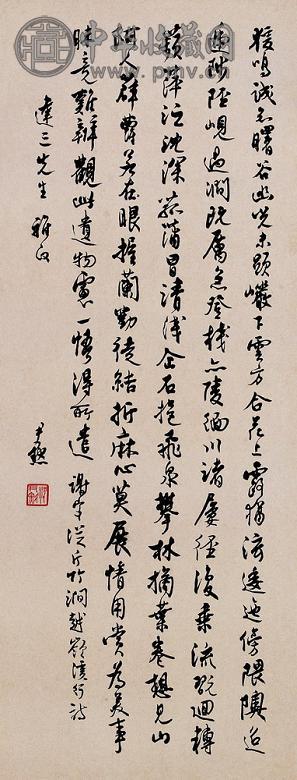 中华收藏网
www.pmv.cn
猨鳴誠知曙谷幽光未顯巖下雲方合花上露猶泫逶迤傍隈隩迢
遞陟陘峴過澗既厲急登棧亦陵緬川渚屢徑復乘流翫迴轉
蘋萍泛沈深菰蒲冒清淺企石挹飛泉攀林摘葉卷想見山
阿人薜蘿若在眼握蘭勤徒結折麻心莫展情用賞為美事
昧竟誰辨觀此遺物慮一悟得所遣 謝客從斤竹澗越嶺溪行詩
達三先生雅正
尹默